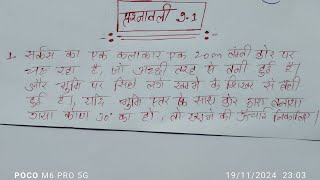 प्रश्नावली 9.1
1. सर्कस का एक कलाकार एक 20m लंबी डोर पर
चढ़ रहा है, जो अच्छी तरह से तनी हुई है।
और भूमि पर सिधे लगे खम्भे के शिखर से बंधी
हुई है। यदि भूमि स्तर के साथ डोर द्वारा बनाया
गया कोण 30° का हो, तो खम्भे की ऊँचाई निकालिए।
POCO M6 PRO 5G
19/11/2024 23:03